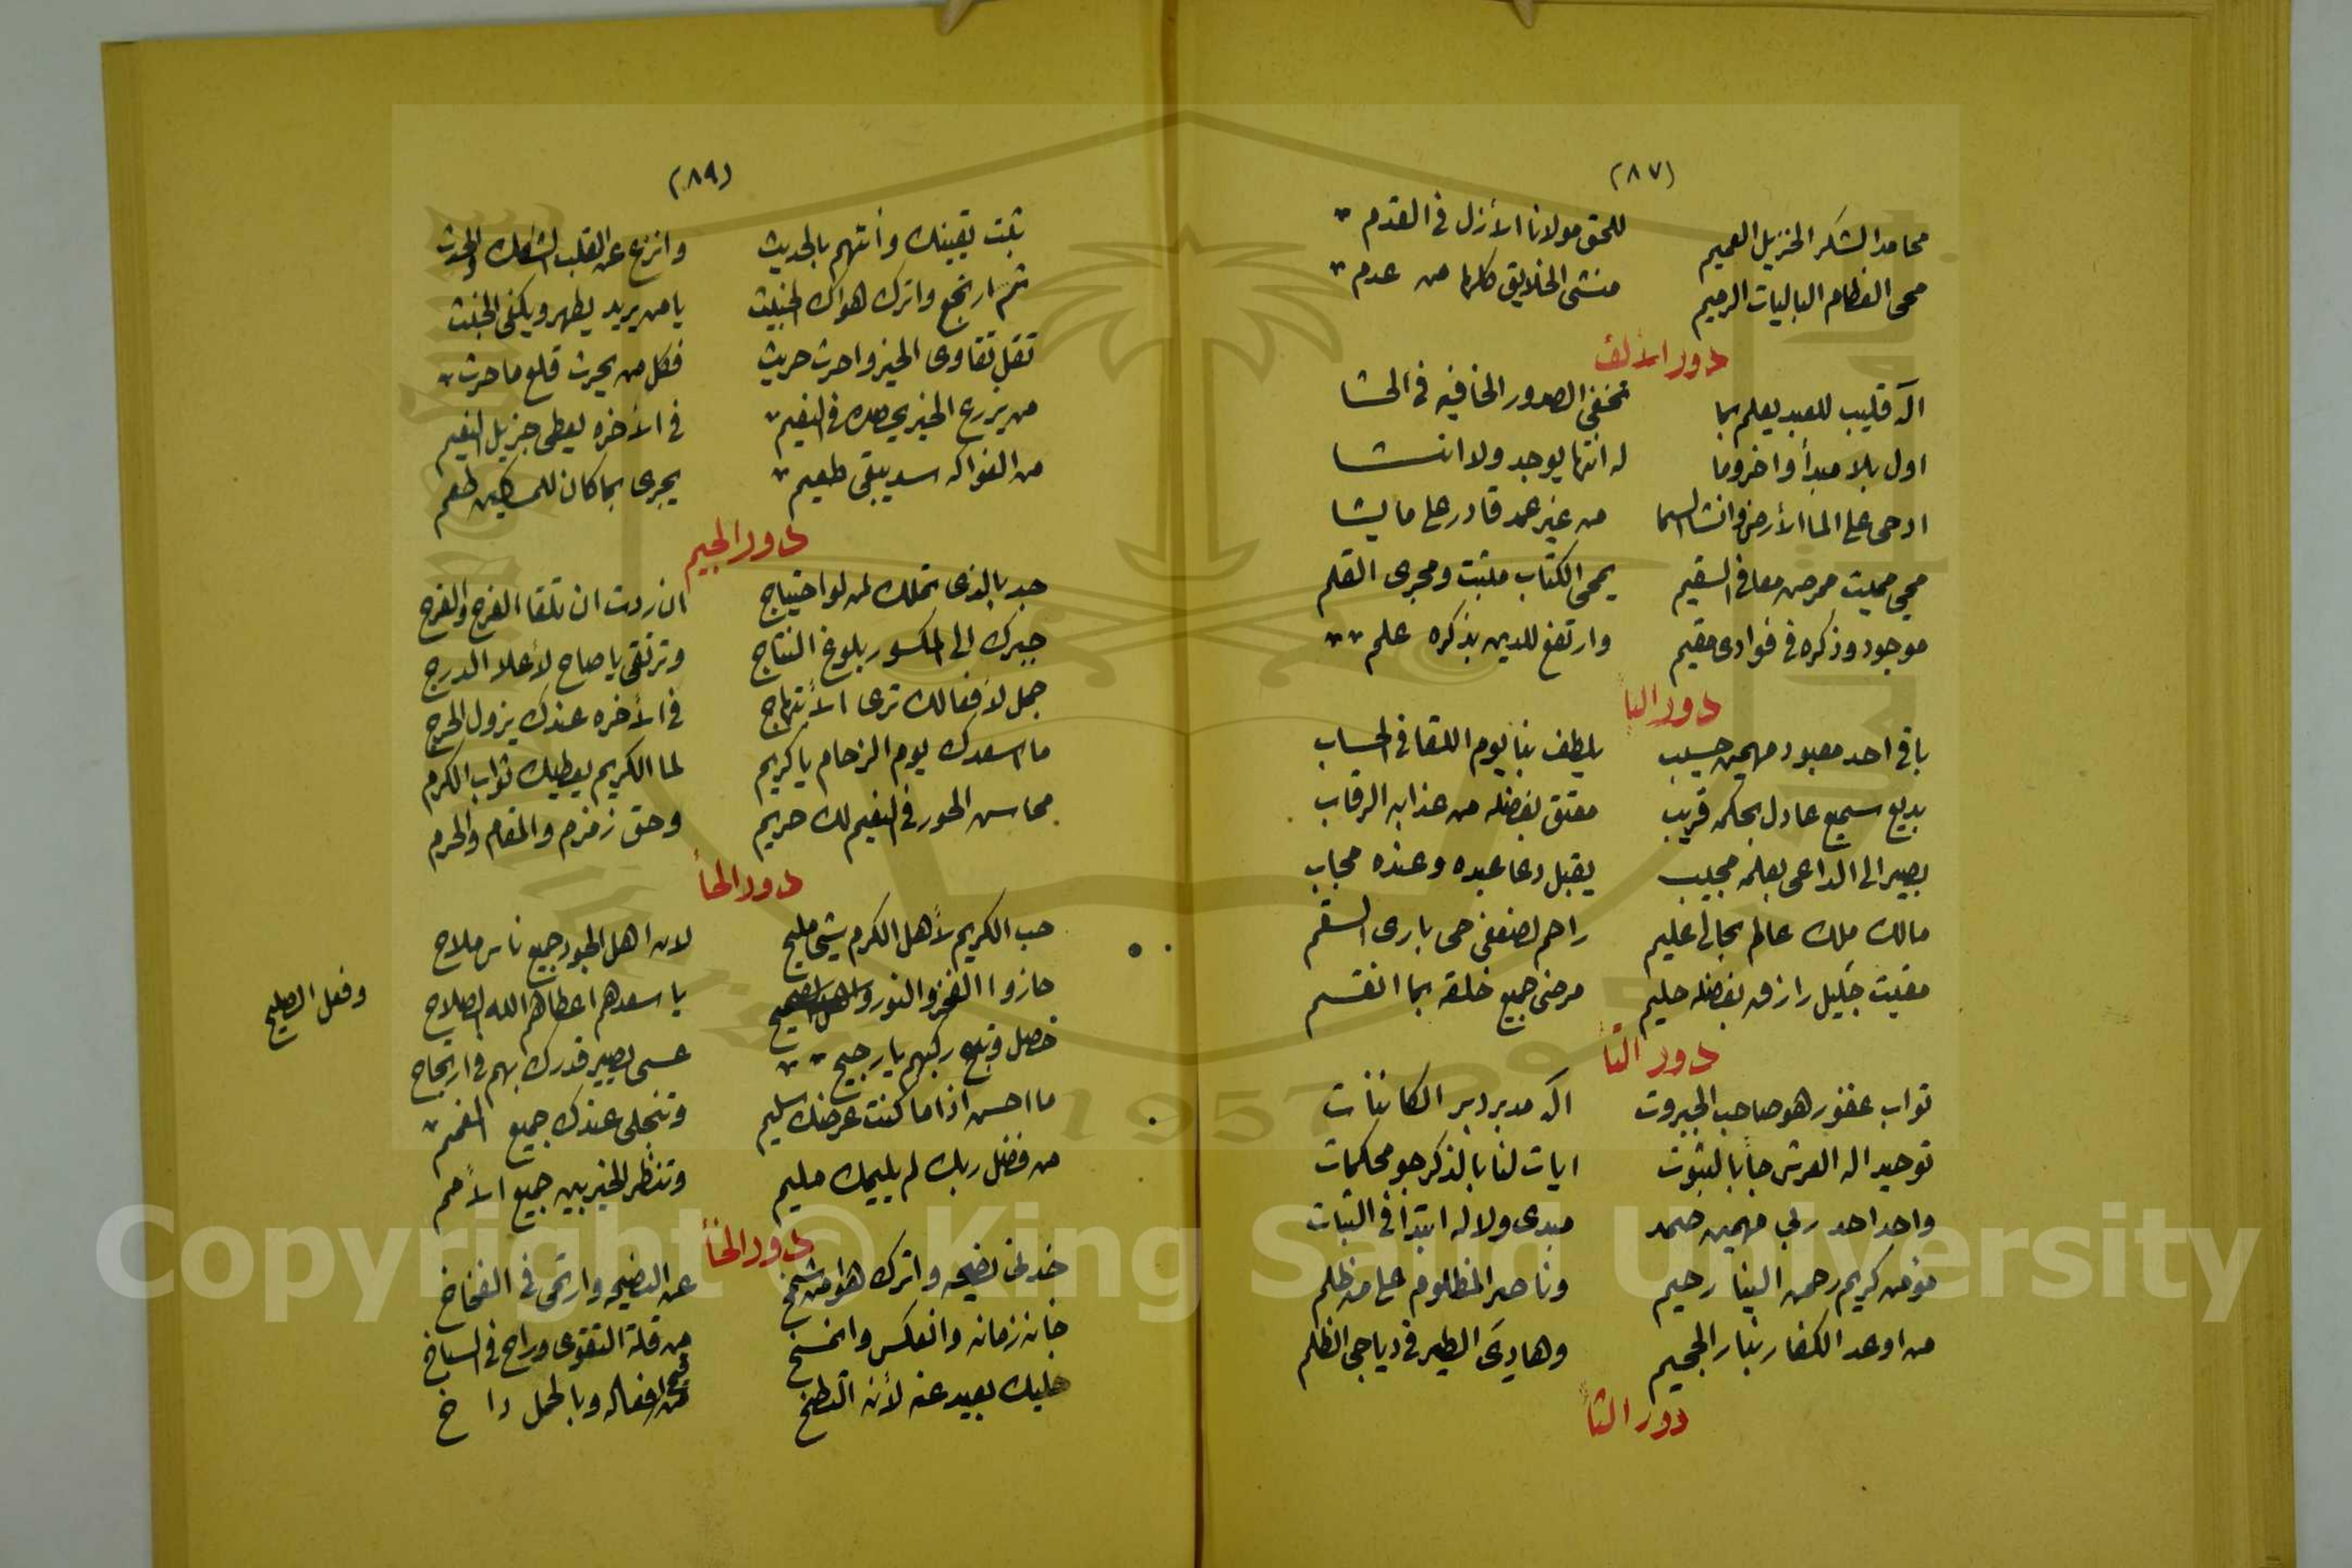 (٨٧)
محامد الشكر الجزيل العميم للحق مولانا الأزل فى القدم
محى العظام الباليات الرميم منشى الخلايق كلها من عدم
دور الألف
اله قليب للعبد يعلم بما تخفى الصدور الخافيه فى الحشا
اول بلا مبدأ واخر وما له انتها يوجد ولا انشا
ادحى على الما الأرض وانشا السما من غير عمد قادر على ما يشا
محيى مميت ممرض معافى السقيم يمحى الكتاب مثبت ومجرى القلم
موجود وذكره فى فوادى مقيم وارتفع للدين بذكره علم
دور البا
باقى احد معبود مهيمن حسيب يلطف بنا يوم اللقا فى الحساب
بديع سميع عادل بحكمه قريب معتق بفضله من عذابه الرقاب
بصير الى الداعى بعلمه مجيب يقبل دعا عبده وعنده مجاب
مالك ملك عالم بحالى عليم راحم لضعفى حى بارى السقم
مقيت جليل رازق بفضله حليم مرضى جميع خلقه بما انقسم
دور التا
تواب غفور هو صاحب الجبروت اله مدبر دبر الكائنات
توحيد اله العرش جا بالثبوت ايات لنا بالذكر جو محكمات
واحد احد ربى مهيمن صمد مبدى ولا له ابتدا فى الثبات
مؤمن كريم رحمن الينا رحيم وناصر المظلوم على من ظلم
من اوعد الكفار بنار الجحيم وهادى الطير فى دياجى الظلم
دور الثا
(٨٩)
ثبت يقينك وأتهم بالحديث وانزع عن القلب الشكك والحدث
ثم ارتجع واترك هواك الخبيث يا من يريد يطهر ويكفى الخبث
تقل تقاوى الخير واحرث حريث فكل من يحرث قلع ما حرث
من يزرع الخير يحصده فى النعيم فى الأخره يعطى جزيل النعيم
من الفواكه سد يبقى طعيم يجرى بما كان للمساكين طعم
دور الجيم
جد بالذى تملك لمن لو احتياج ان ردت ان تلقا الفرح والفرج
جبرك الى المكسور بلوغ النتاج وترتقى يا صاح لأعلا الدرج
جمل لأفعالك ترى الأبتهاج فى الأخره عندك يزول الحرج
ما اسعدك يوم الزحام يا كريم لما الكريم يعطيك ثواب الكرم
محاسن الحور فى النعيم لك حريم وحق زمزم والمقام والحرم
دور الحأ
حب الكريم لأهل الكرم شئ مليح لان اهل الجود جميع ناس ملاح
حازوا الفخر والنور يا سعدهم اعطاهم الله الصلاح
وفعل الصليح
حصل وتبع ركبهم يا رجيح عسى يصير قدرك بهم فى ارتجاح
ما احسن اذا ما كنت عرضك سليم وتنجلى عندك جميع الغمم
من فضل ربك لم يليمك مليم وتنظر الخير بين جميع الأمم
دور الخأ
خد لى نصيحه واترك هوا من شمخ عن النصيحه وارتمى فى الفخاخ
خانه زمانه وانعكس وانمسخ من قلة التقوى وراح فى السباخ
خليك بعيد عنه لأنه التطخ من قبح افعاله وبالحمل داخ